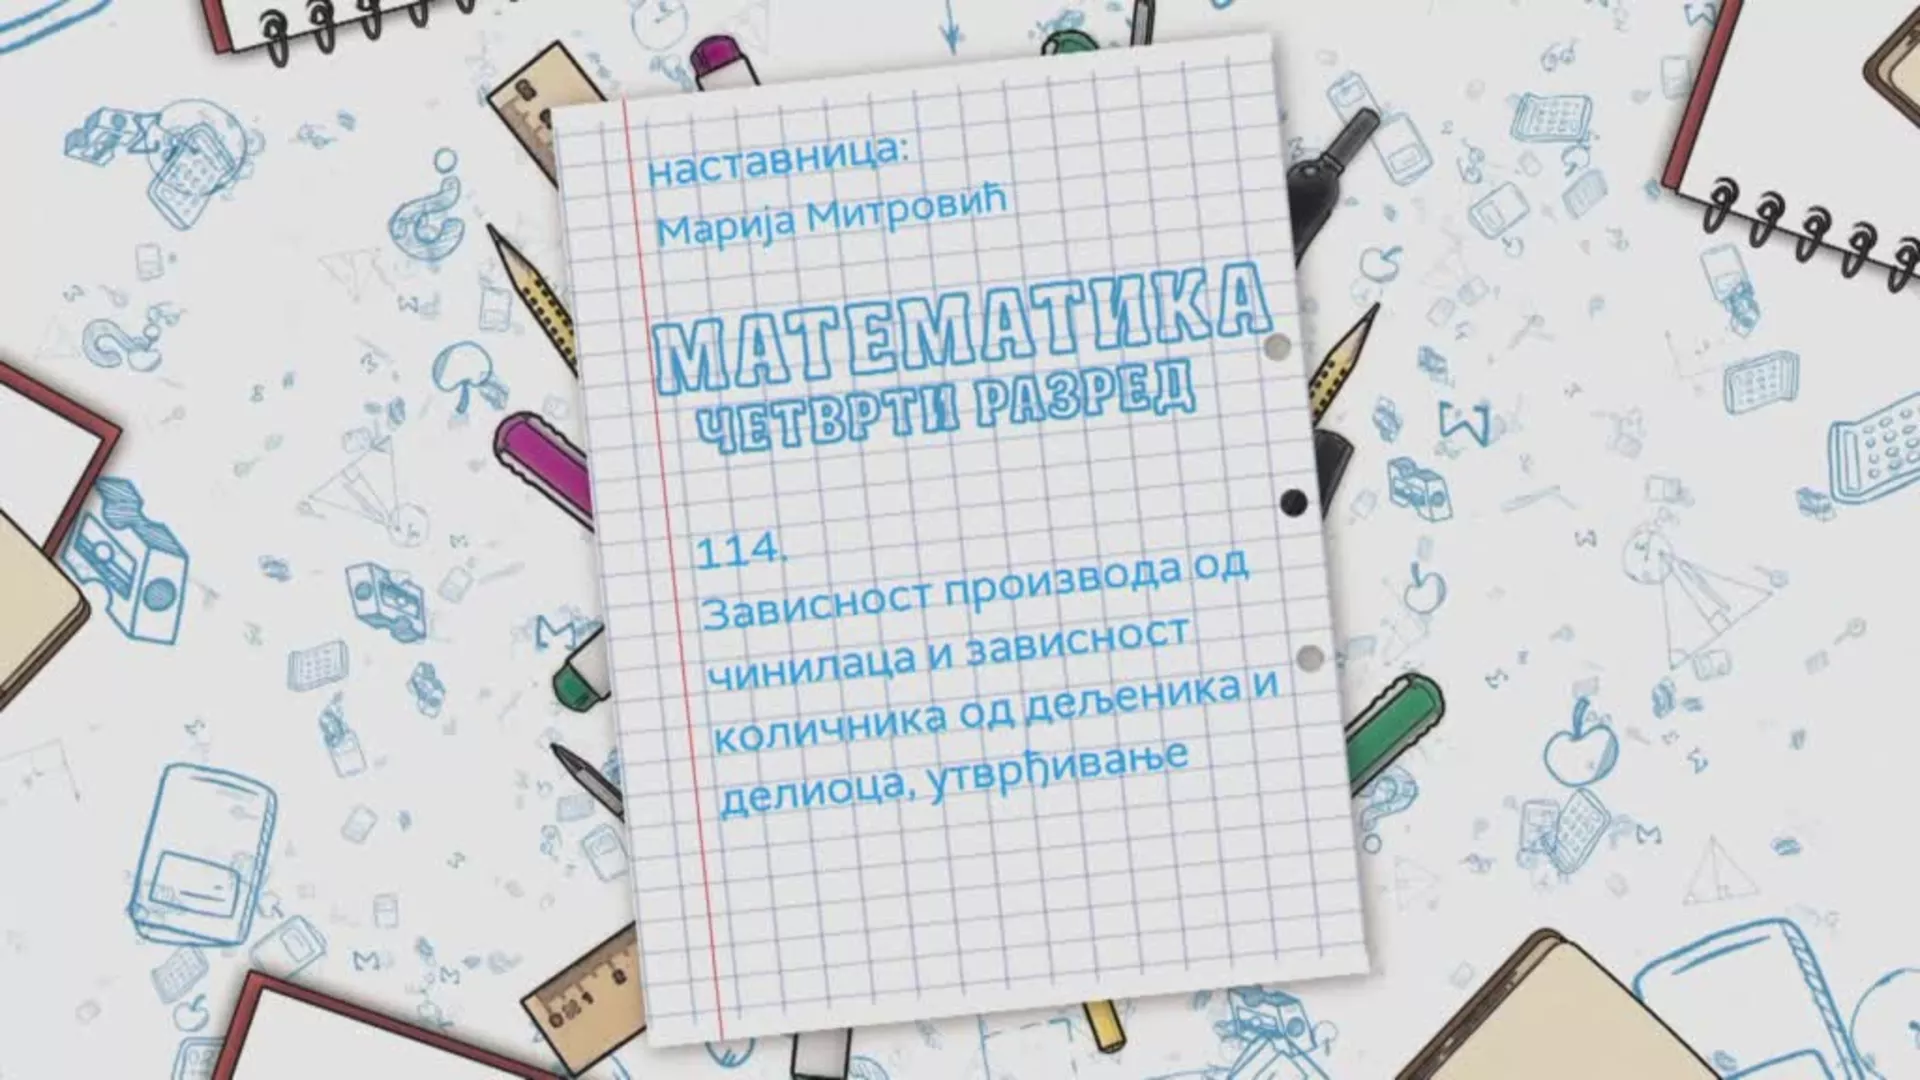 наставница:
Марија Митровић
МАТЕМАТИКА
ЧЕТВРТИ РАЗРЕД
114.
Зависност производа од
чинилаца и зависност
количника од дељеника и
делиоца, утврђивање